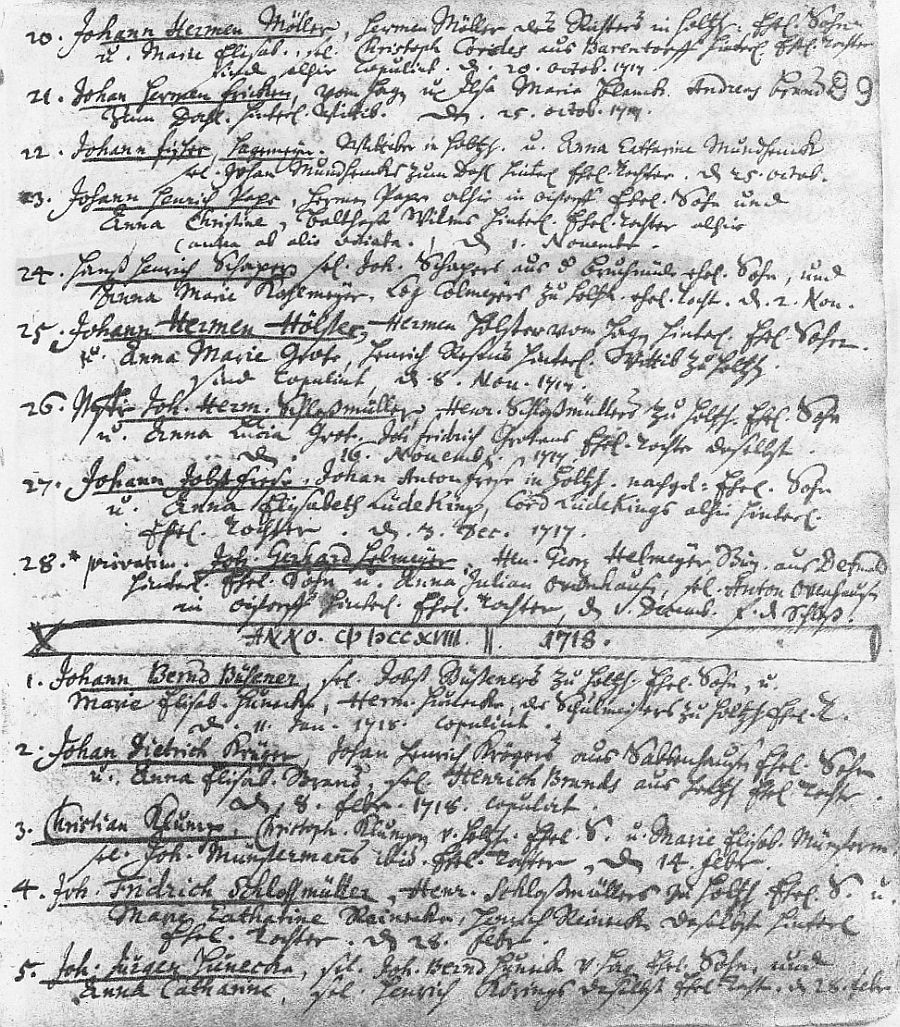 20. Johann Hermen Möller, Hermen Möller des Richters in Holtzh. Ehel. Sohn
u. Marie Elisab., sel. Christoph Cordes aus Barentorff hinterl. Ehel. Tochter
sind alhir Copulirt. d. 20. octob. 1717.
99
21. Johan Hermen Fricken, vom Hag u. Ilsa Maria Andreas
zum Dahl. hinterl. Wittib. den. 25. octob. 1717.
22. Johann Hagemeyer. in Holtzh. u. Anna Catharina Mundhencke
sel. Johan Mundhenckes zum Dahl hinterl. Ehel. Tochter. d 25. octob.
23. Johann Henrich Pape, Hermen Pape alhir in oistorff Ehel. Sohn und
Anna Christine, Balthasar Wilms hinterl. Ehel. Tochter alhir
( antea ab alio vitiata. ) d 1. Novembr.
24. Hanß Henrich Schaper sel. Joh. Schapers aus ehel. Sohn, und
Anna Marie Kohlmeyer, Colmeyers zu Holtzh. ehel. Tocht. d. 2. Nov.
25. Johann Hermen Hölster, Hermen Hölster vom Hag hinterl. Ehel. Sohn.
u. Anna Marie Grote, Henrich hinterl. Wittib zu Holtzh.
sind Copulirt, d. 8. Nov. 1717.
26. Joh. Herm. Schloßmüller, Henr. Schloßmüllers zu Holtzh. Ehel. Sohn
u. Anna Lucia Grot. Joh Fridrich Grotens Ehel. Tochter daselbst.
d. 16. Novemb. 1717
27. Johann Jobst Frese, Johan Anton Frese in Holtzh. nachgel. Ehel. Sohn
u. Anna Elisabeth Lüdeking, Cord Lüdekings alhir hinterl.
Ehel. Tochter. d. 3. Dec. 1717.
28. * privatim. Joh. Gerhard Helmeyer, Hen. Georg Helmeyer aus Detmold
hinterl. Ehel. Sohn u. Anna Julian Ovenhausen, sel. Anton Ovenhausen
in oistorff hinterl. Ehel. Tochter, d
ANNO. CIƆ IƆCCXVIII. || 1718.
1. Johann Bernd Büsener, sel. Jobst Büseners zu Holtzh. Ehel. Sohn, u.
Marie Elisab. Hunecke, Herm. Hunecke, des Schulmeisters zu Holtzh Ehel. T.
d. 11. Jan. 1718. Copulirt.
2. Johan Dietrich Kröger, Johan Henrich Krögers aus Sabbenhausen Ehel. Sohn
u. Anna Elisab. Brand, sel. Henrich Brands aus Holtzh Ehel Tochter.
d. 8. Febr. 1718. copulirt.
3. Christian Klump, Christoph. Klumpen v. Holtzh. Ehel. S. u. Marie Elisab. Münsterm.
sel. Joh. Münstermans Ehel. Tochter, d 14. Febr.
4. Joh. Fridrich Schloßmüller, Henr. Schloßmüllers zu Holtzh Ehel. S. u.
Marie Catharine Reinecke, Henrich Reinecke daselbst hinterl
Ehel. Tochter. d 28. Febr.
5. Joh. Jürgen Hunecke, sel. Joh. Bernd Hunecke v. Hag Ehel. Sohn, und
Anna Catharine, sel. Henrich Rörings daselbst Ehel Tocht. d. 28. Febr